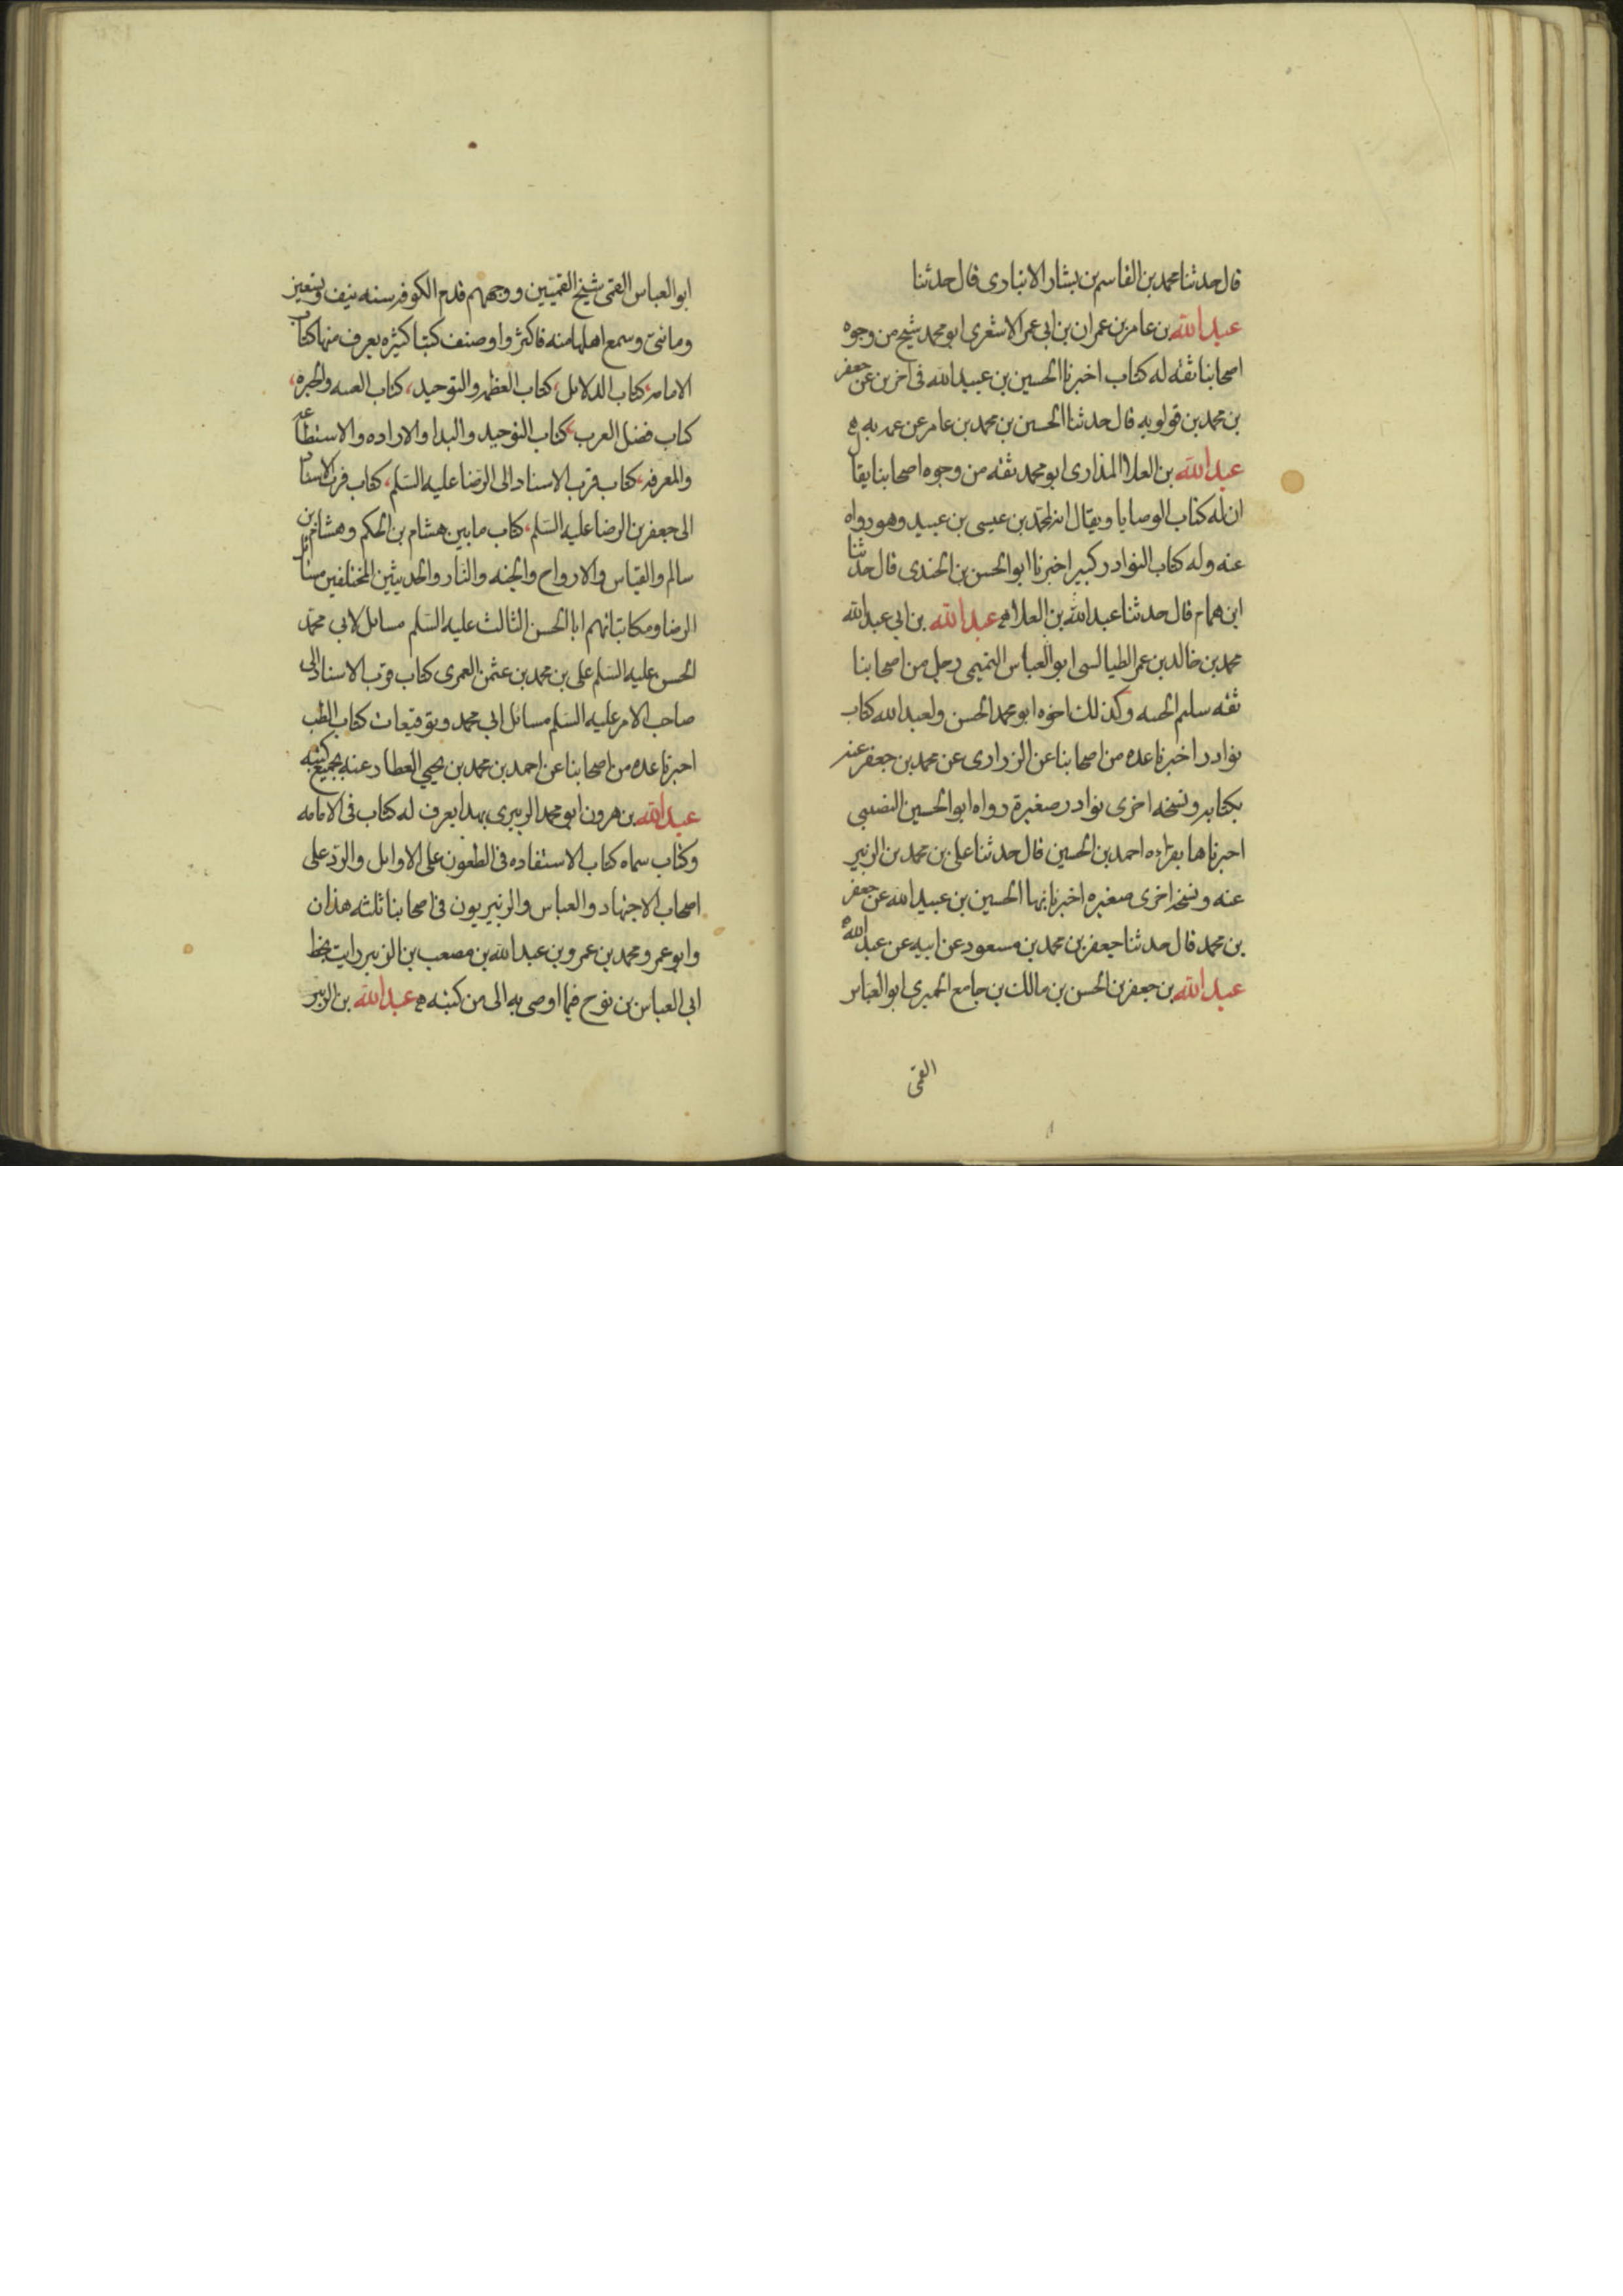 قال حدثنا محمد بن القاسم بن بشار الانبارى قال حدثنا
عبد الله بن عامر بن عمران بن ابى عمر الاشعرى ابو محمد شيخ من وجوه
اصحابنا ثقه له كتاب اخبرنا الحسين بن عبيد الله فى آخرين عن جعفر
بن محمد بن قولويه قال حدثنا الحسين بن محمد بن عامر عن عمه به
عبد الله بن العلا المذارى ابو محمد ثقه من وجوه اصحابنا يقال
ان له كتاب الوصايا ويقال انه لمحمد بن عيسى بن عبيد وهو رواه
عنه وله كتاب النوادر كبير اخبرنا ابو الحسن بن الجندى قال حدثنا
ابن همام قال حدثنا عبد الله بن العلا عبد الله بن ابى عبد الله
محمد بن خالد بن عمر الطيالسى ابو العباس التميمى رجل من اصحابنا
ثقه سليم الجنبه وكذلك اخوه ابو محمد الحسن ولعبد الله كتاب
نوادر اخبرنا عده من اصحابنا عن الزرارى عن محمد بن جعفر عنه
بكتابه ونسخه اخرى نوادر صغيرة رواه ابو الحسين النصيبى
اخبرناها بقراءه احمد بن الحسين قال حدثنا على بن محمد بن الزبير
عنه ونسخه اخرى صغيره اخبرنا بها الحسين بن عبيد الله عن جعفر
بن محمد قال حدثنا جعفر بن محمد بن مسعود عن ابيه عن عبد الله
عبد الله بن جعفر بن الحسن بن مالك بن جامع الحميرى ابو العباس
القمى
ابو العباس القمى شيخ القميين ووجههم قدم الكوفه سنه نيف وتسعين
ومائتى وسمع اهلها منه فاكثروا وصنف كتبا كثيره يعرف منها كتاب
الامامه كتاب الدلائل كتاب العظمه والتوحيد كتاب الغيبه والحيره
كتاب فضل العرب كتاب التوحيد والبدا والاراده والاستطاعه
والمعرفه كتاب قرب الاسناد الى الرضا عليه السلم كتاب قرب الاسناد
الى جعفر بن الرضا عليه السلم كتاب ما بين هشام بن الحكم وهشام بن
سالم والقياس والارواح والجنه والنار والحديثين المختلفين مسائل
الرضا ومكاتباتهم ابا الحسن الثالث عليه السلم مسائل لابى محمد
الحسن عليه السلم على بن محمد بن عثمن العمرى كتاب قرب الاسناد الى
صاحب الامر عليه السلم مسائل ابى محمد وتوقيعات كتاب الطب
اخبرنا عده من اصحابنا عن احمد بن محمد بن يحيي العطار عنه بجميع كتبه
عبد الله بن هرون ابو محمد الزبيرى بهذا يعرف له كتاب فى الامامه
وكتاب سماه كتاب الاستفاده فى الطعون على الاوايل والرد على
اصحاب الاجتهاد والعباس والزبيريون فى اصحابنا ثلثه هذان
وابو عمرو محمد بن عمرو بن عبد الله بن مصعب بن الزبير رايت بخط
ابى العباس بن نوح فيما اوصى به الى من كتبه عبد الله بن الزبير